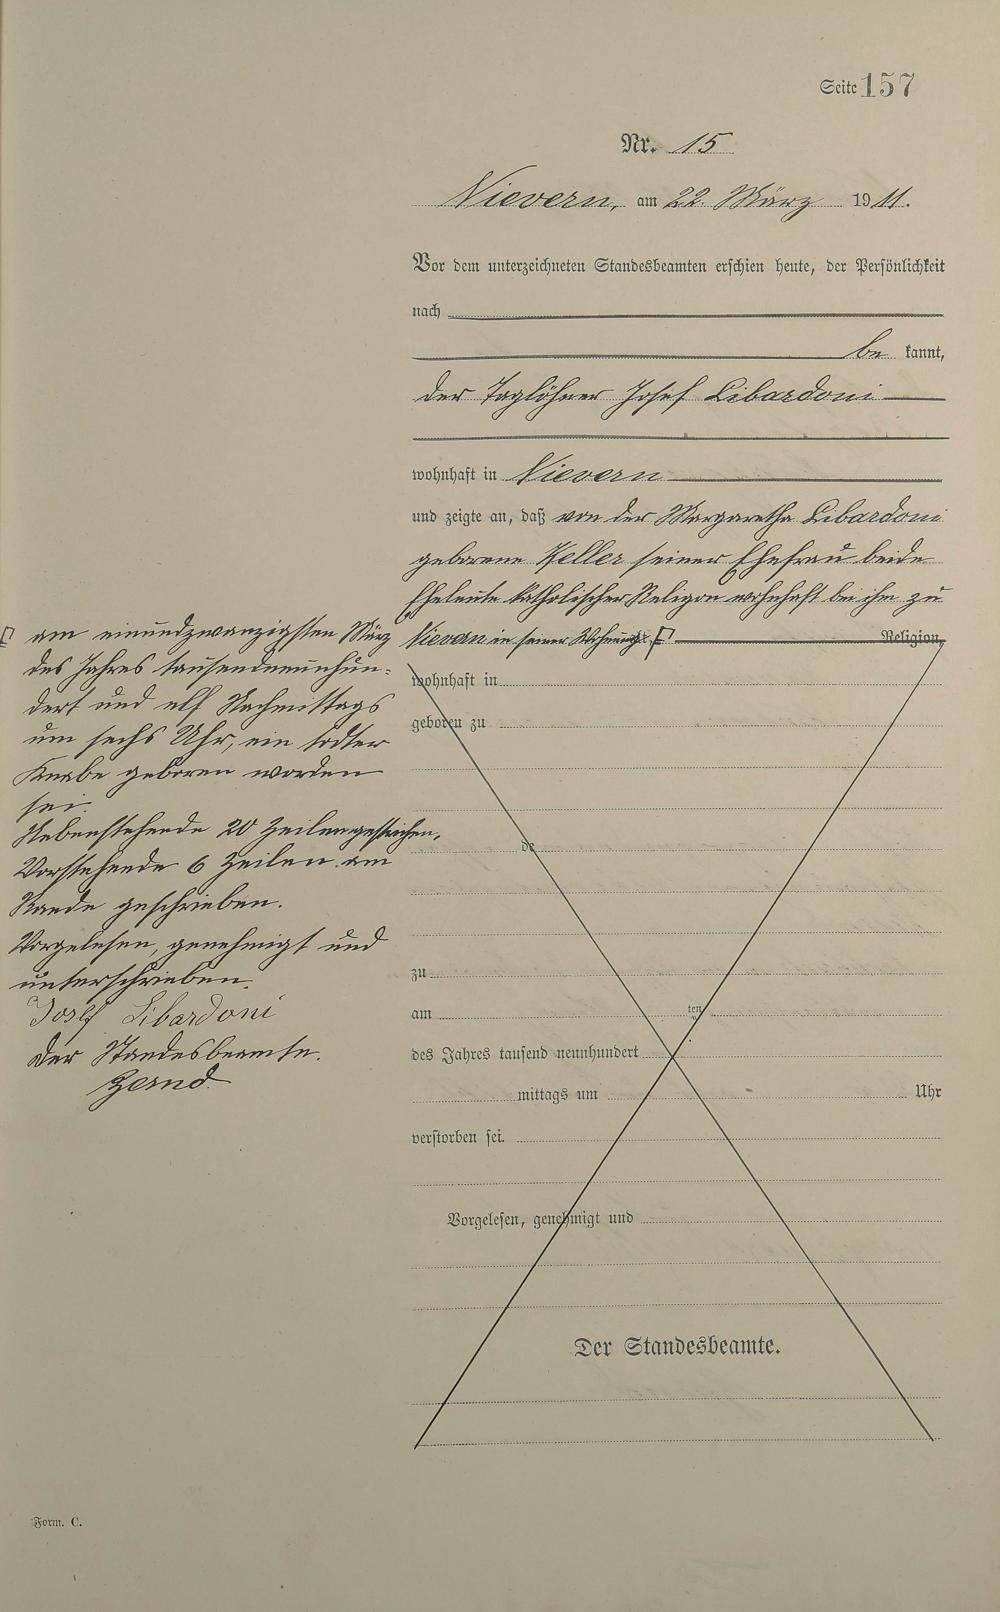 Seite 157
Nr. 15
Nievern, am 22. März 1911.
Vor dem unterzeichneten Standesbeamten erschien heute, der Persönlichkeit
nach
be kannt,
der Taglöhner Josef Libardoni
wohnhaft in Nievern
und zeigte an, daß von der Margaretha Libardoni
geborene Keller seiner Ehefrau beide
Eheleute katholischer Religion wohnhaft bei ihm zu
Nievern in seiner Wohnung, Religion,
wohnhaft in
geboren zu
de
zu
am ten
des Jahres tausend neunhundert
mittags um Uhr
verstorben sei.
Vorgelesen, genehmigt und
Der Standesbeamte.
am einundzwanzigsten März
des Jahres tausendneunhun-
dert und elf Nachmittags
um sechs Uhr, ein todter
Knabe geboren worden
sei.
Nebenstehende 20 Zeilen gestrichen,
Vorstehende 6 Zeilen am
Rande geschrieben.
Vorgelesen, genehmigt und
unterschrieben.
Josef Libardoni
Der Standesbeamte.
Zernd
Form. C.